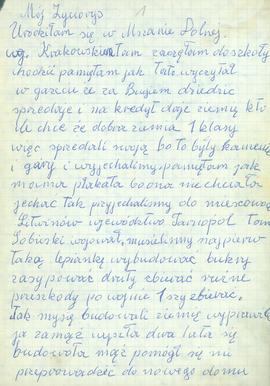 Mój Życiorys 1
Urodziłam się w Mszanie Dolnej.
wg. Krakowskim tam zaczęłam do szkoły
chodzić pamiętam jak Tato wyczytał
w gazecie że za Bugiem dziedzic
sprzedaje i na kredyt daje ziemię kto
ile chce że dobra ziemia 1 klasy
więc sprzedali swoją bo to były kamienie
i góry i wyjechaliśmy. pamiętam jak
mama płakała bo ona nie chciała
jechać Tak przyjechaliśmy do miejscowoś
Litwinów województwo Tarnopol Tam
Sobieski wojował, musieliśmy najpierw
taką lepiankę wybudować bukry
zasypować druty zbierać różne
przeszkody po wojnie 1 szej zbierać.
Jak myśę budowali ziemię wyprawili
ja zamąż wyszła dwa lata się
budowała mąż pomógł się mi
przeprowadzić do nowego domu